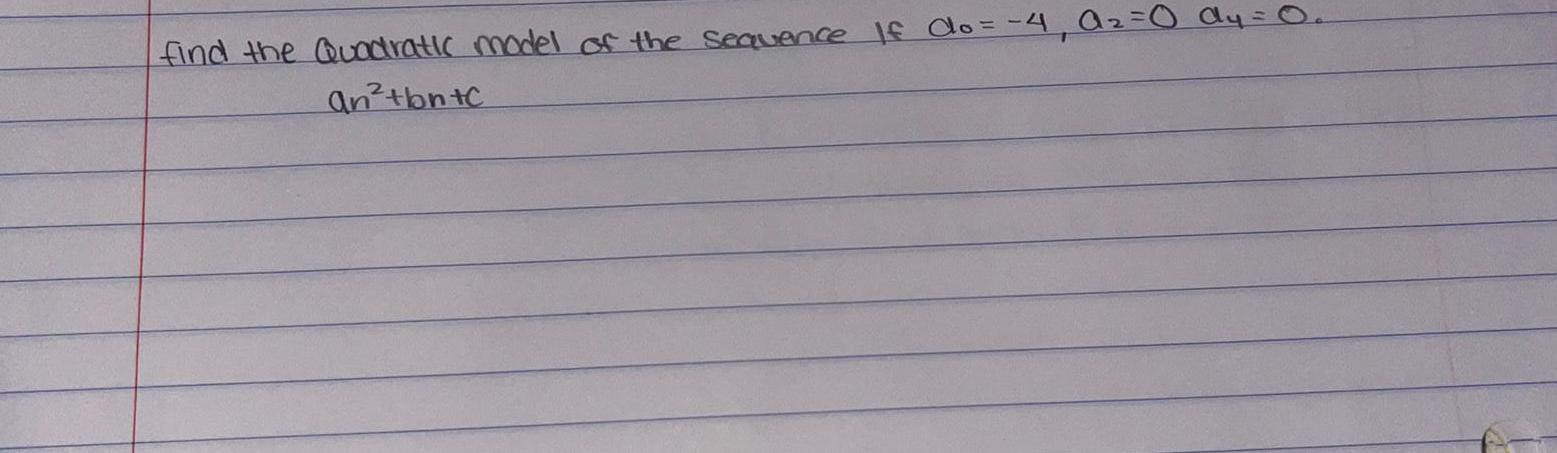 find the Quadratic model of the sequence If a₀ = -4, a₂=0 a₄=0.
an²+bn+c